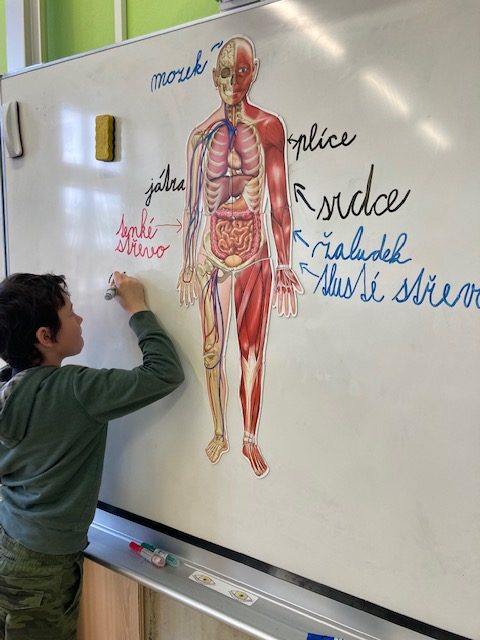 mozek
plíce
játra
srdce
tenké
střevo
žaludek
tlusté střevo